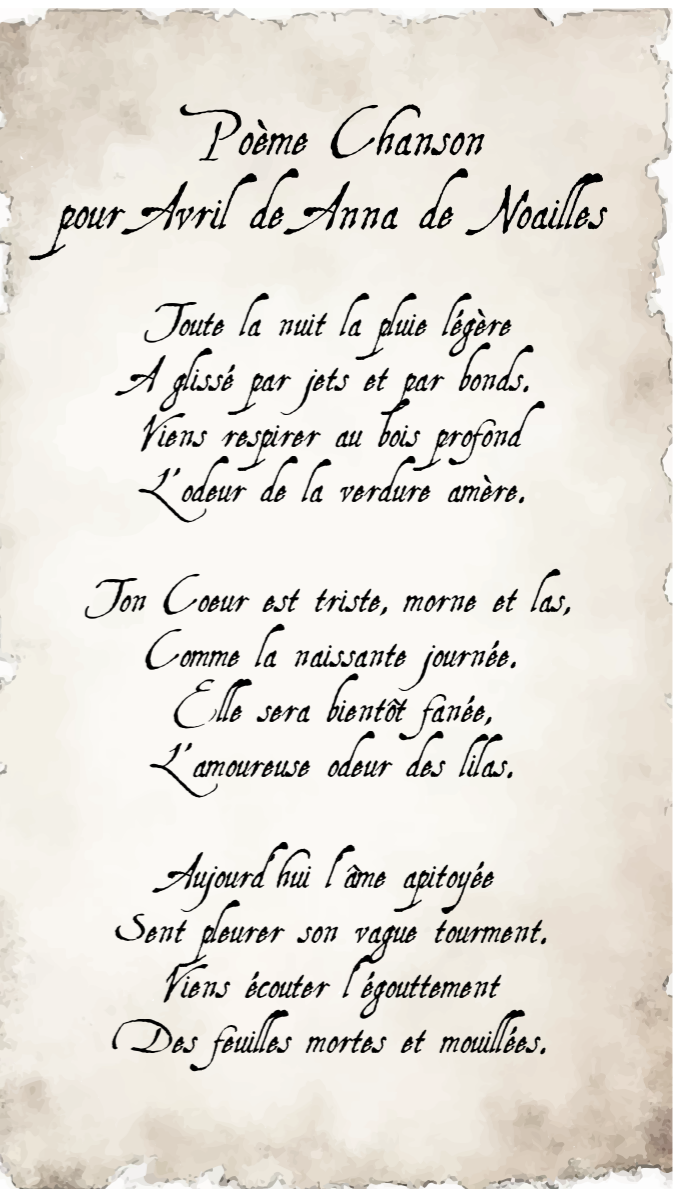 Poème Chanson
pour Avril de Anna de Noailles
Toute la nuit la pluie légère
A glissé par jets et par bonds.
Viens respirer au bois profond
L'odeur de la verdure amère.
Ton Coeur est triste, morne et las,
Comme la naissante journée.
Elle sera bientôt fanée,
L'amoureuse odeur des lilas.
Aujourd'hui l'âme apitoyée
Sent pleurer son vague tourment.
Viens écouter l'égouttement
Des feuilles mortes et mouillées.